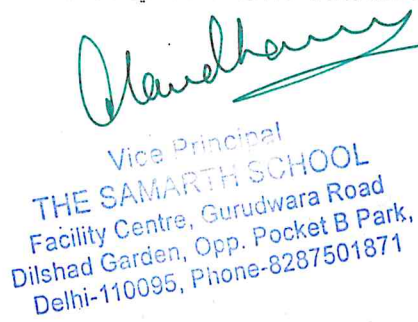 Vice Principal
THE SAMARTH SCHOOL
Facility Centre, Gurudwara Road
Dilshad Garden, Opp. Pocket B Park,
Delhi-110095, Phone-8287501871